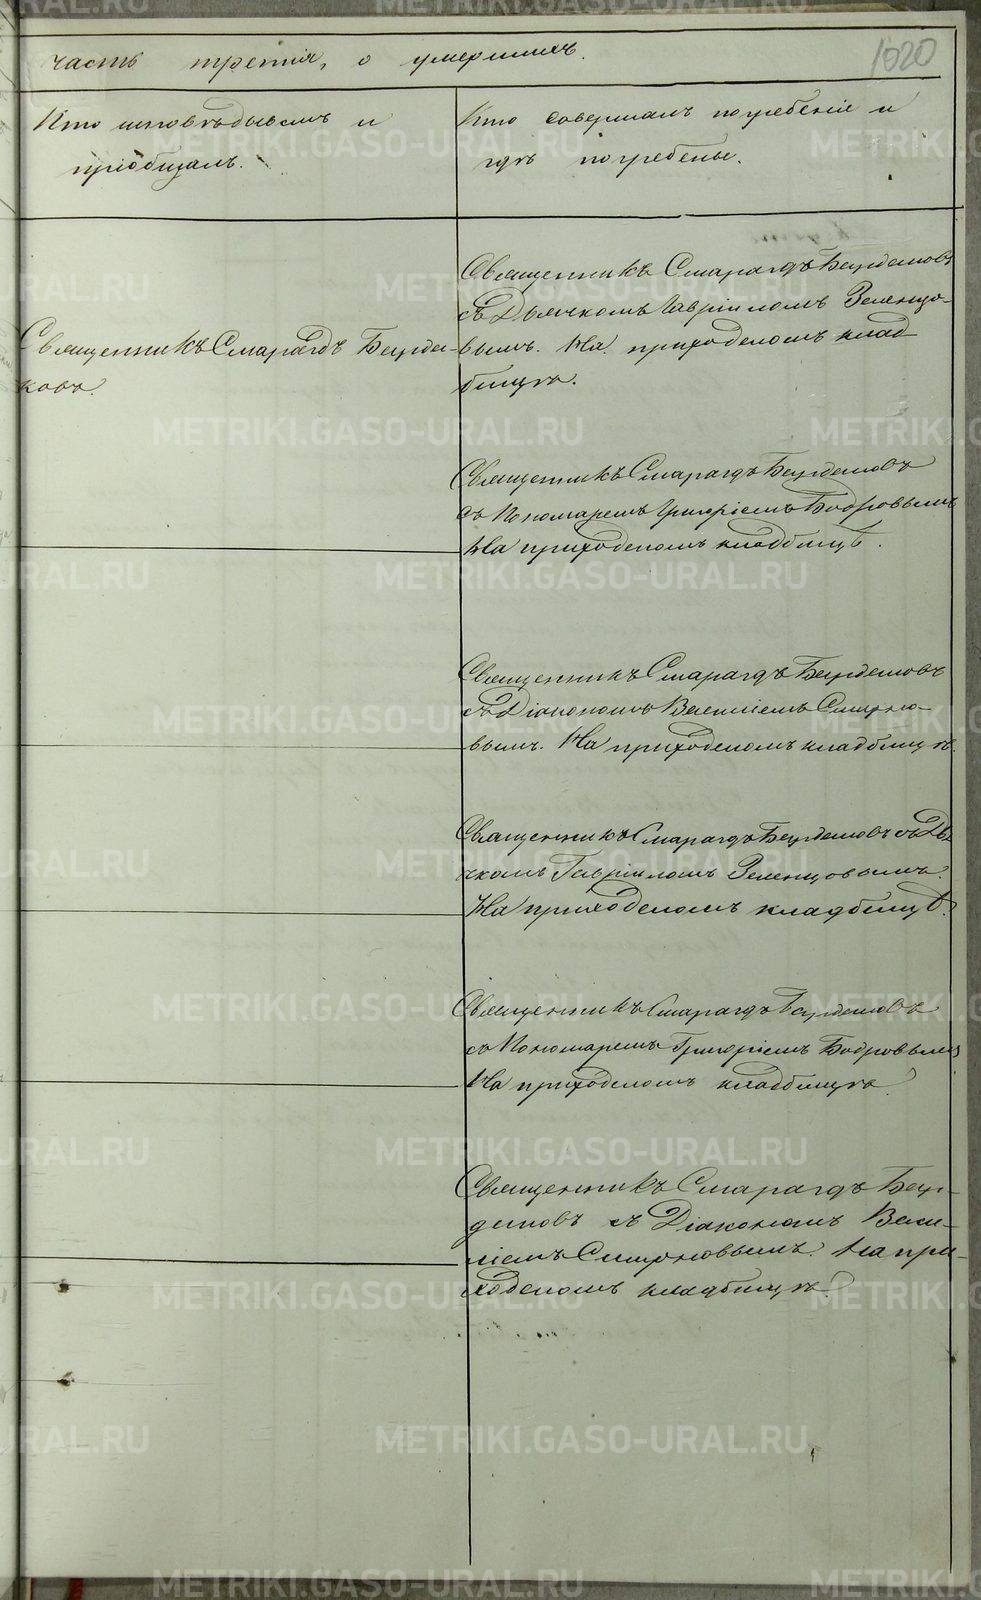 часть третія, о умершихъ.
1020
Кто исповѣдывалъ и
пріобщалъ.
Кто совершалъ погребеніе и
гдѣ погребены.
Священникъ Смарагдъ
Священникъ Смарагдъ
съ Дьячкомъ Гавріиломъ Зеленцо-
вымъ. На приходскомъ клад
бищѣ.
Священникъ Смарагдъ
съ Пономаремъ Григоріемъ Бобровымъ
На приходскомъ кладбищѣ.
Священникъ Смарагдъ
съ Діакономъ Василіемъ Смирно-
вымъ. На приходскомъ кладбищѣ.
Священникъ Смарагдъ съ Дья
чкомъ Гавріиломъ Зеленцовымъ.
На приходскомъ кладбищѣ.
Священникъ Смарагдъ
съ Пономаремъ Григоріемъ Бобровымъ
На приходскомъ кладбищѣ.
Священникъ Смарагдъ
съ Діакономъ Васи-
ліемъ Смирновымъ. На при-
ходскомъ кладбищѣ.
METRIKI.GASO-URAL.RU